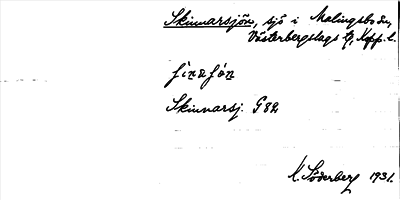 Skinnarsjön, sjö i Malingsbo sn,
Västerbergslags tg, Kopp. l.
Skinnarsj. G82
K. Söderberg 1931.